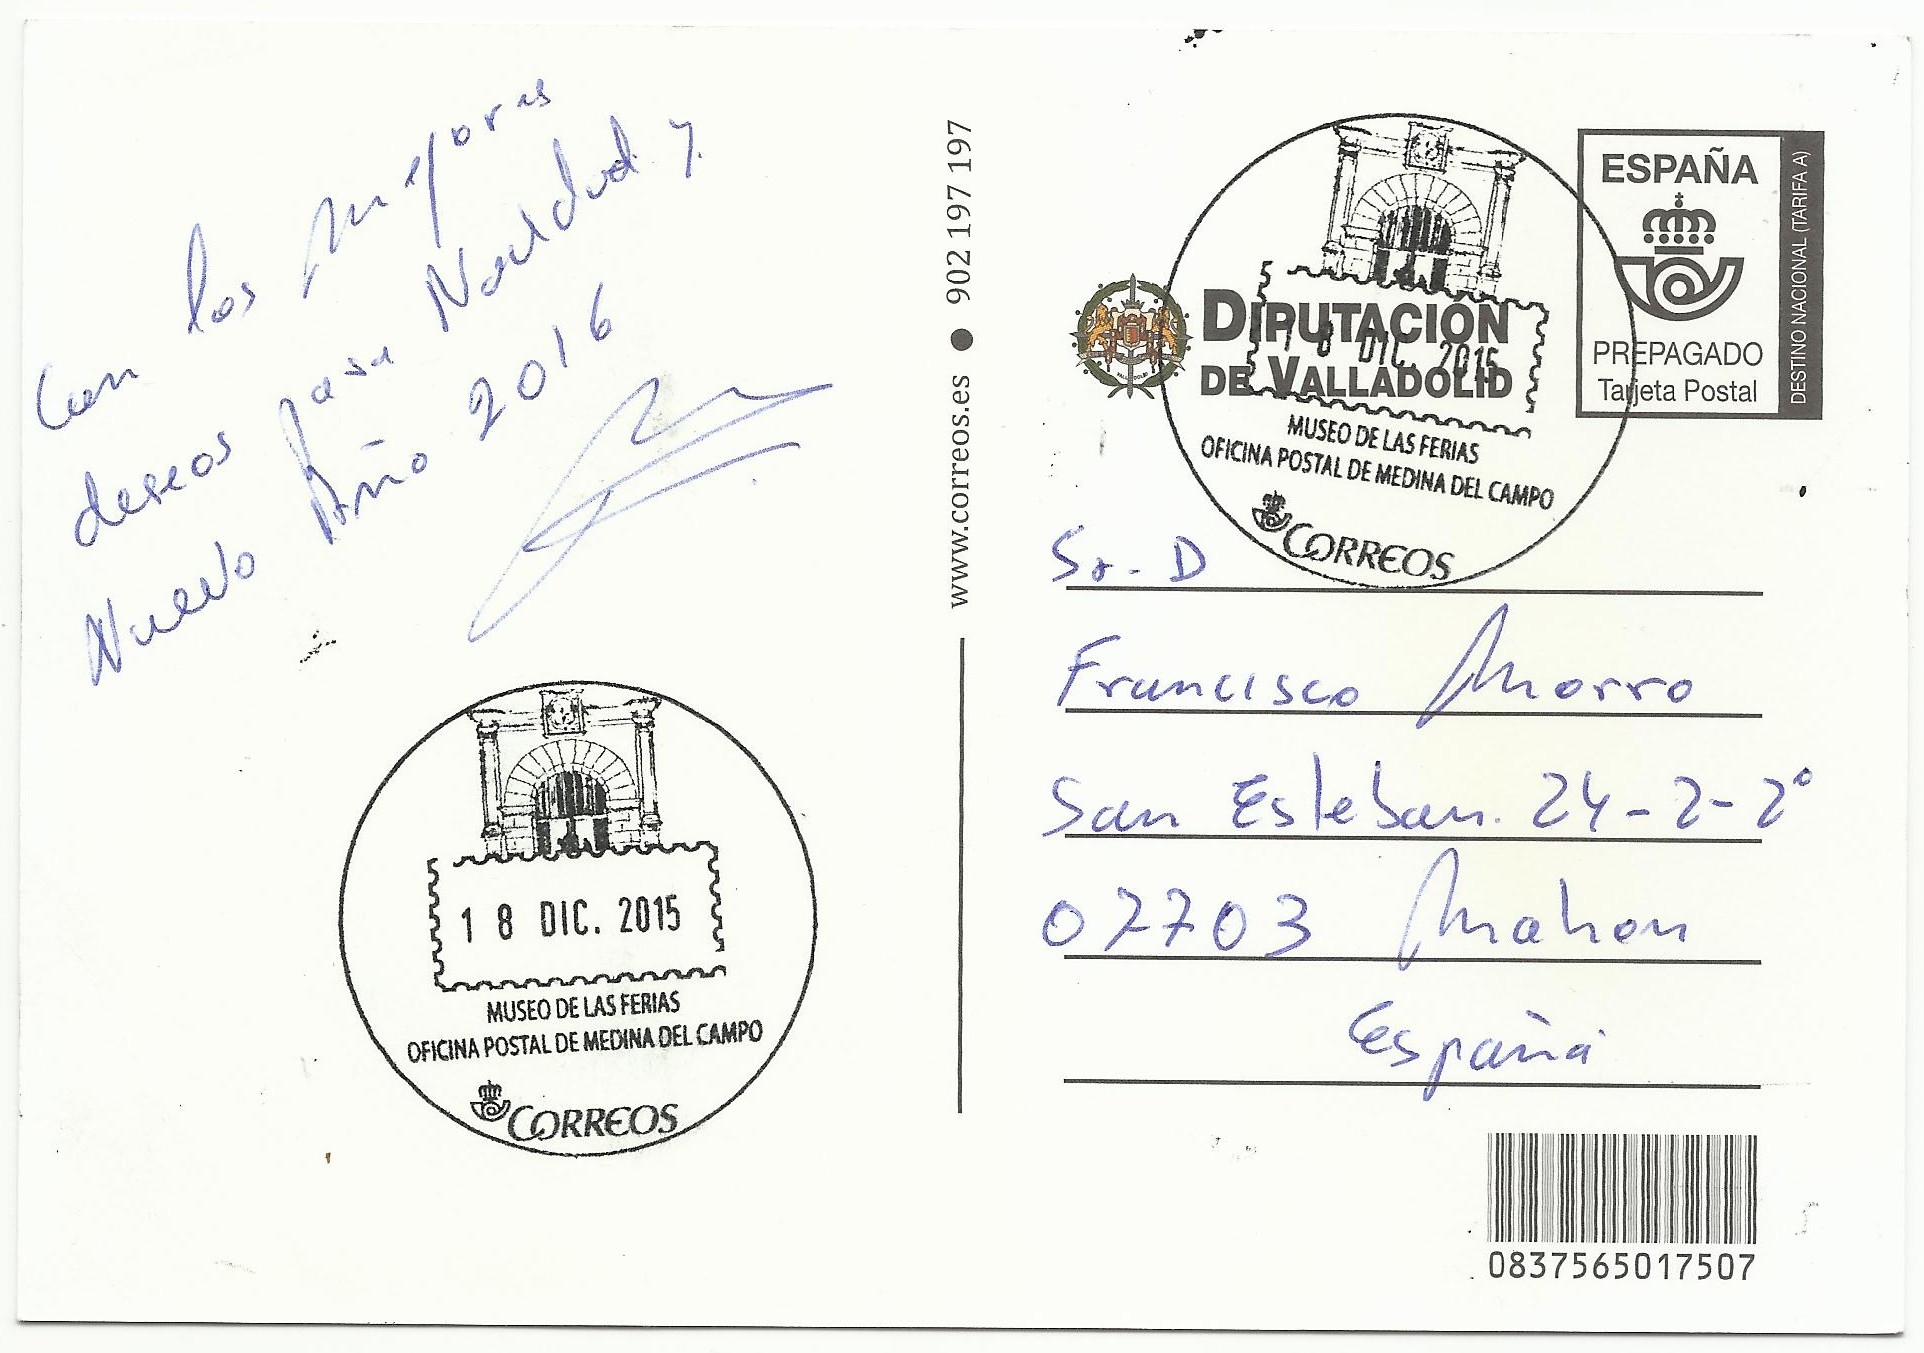 Con los mejores
deseos para Navidad y
Nuevo Año 2016
18 DIC. 2015
MUSEO DE LAS FERIAS
OFICINA POSTAL DE MEDINA DEL CAMPO
CORREOS
www.correos.es ● 902 197 197
DIPUTACIÓN
DE VALLADOLID
18 DIC. 2015
MUSEO DE LAS FERIAS
OFICINA POSTAL DE MEDINA DEL CAMPO
CORREOS
ESPAÑA
PREPAGADO
Tarjeta Postal
DESTINO NACIONAL (TARIFA A)
Sr. D
Francisco Morro
San Esteban. 24-2-2º
07703 Mahon
España
0837565017507